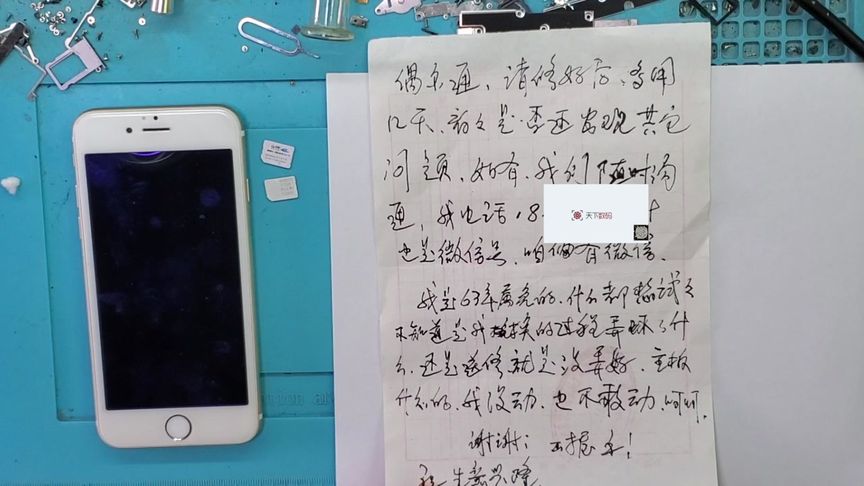 请修好后,
几天, 是否还发现其它
问题, 如有, 我们随时沟
通, 我电话18
天下数码
也是微信号, 咱俩有微信.
我是63年属兔的, 什么都想试
不知道是我 换的过程弄坏了什
么, 还是 修就是没弄好, 主板
什么的, 我没动, 也不敢动, 呵呵.
谢谢! 握手!
祝 生意兴隆